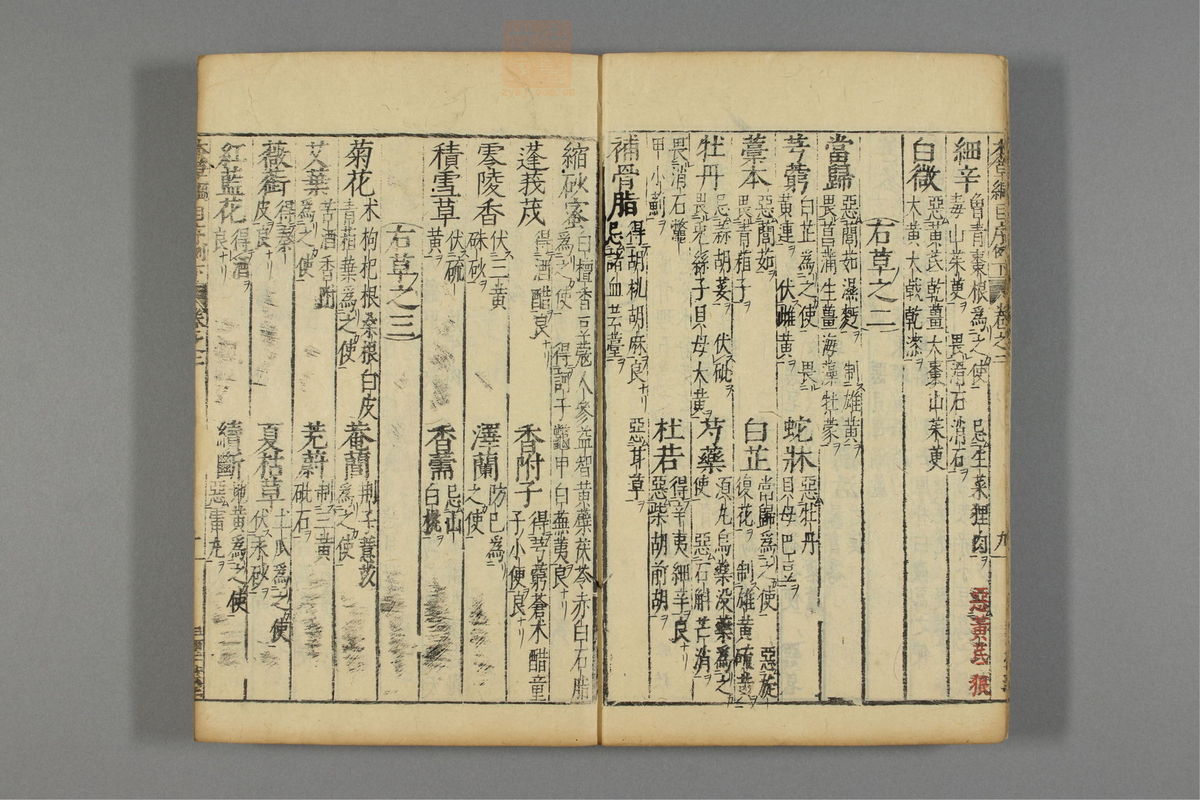 本草綱目序例下 卷之二 九
細辛 曾青棗根爲之使 忌生菜狸肉 惡黃芪狼
毒山茱萸 畏滑石消石
白薇 惡黃芪乾薑大棗山茱萸
大黃大戟乾漆
右草之二
當歸 惡䕡茹濕麪 制雄黃
畏菖蒲生薑海藻牡蒙
蛇牀 惡牡丹
貝母巴豆
芎藭 白芷爲之使 畏
黃連 伏雌黃
白芷 當歸爲之使 惡旋
復花 制雄黃硫黃
藁本 惡䕡茹
畏青葙子
芍藥 須丸烏藥沒藥爲之
使 惡石斛芒消
牡丹 忌蒜胡荽 伏砒
畏兔絲子貝母大黃
杜若 得辛夷細辛良
惡柴胡前胡
畏消石鱉
甲小薊
補骨脂 得胡桃胡麻良 惡甘草
忌諸血芸薹
縮砂蜜 白檀香豆蔻人參益智黃蘗茯苓赤白石脂
爲之使 得訶子鱉甲白蕪荑良
蓬莪茂 得酒醋良
香附子 得芎藭蒼朮醋童
子小便良
零陵香 伏三黃
硃砂
澤蘭 防己爲
之使
積雪草 伏硫
黃
香薷 忌山
白桃
右草之三
菊花 朮枸杞根桑根白皮
青葙葉爲之使
菴䕡 荆子薏苡
爲之使
艾葉 苦酒香附
爲之使
茺蔚 制三黃
砒石
薇銜 得秦
皮良
夏枯草 土瓜爲之使
伏汞砂
紅藍花 得酒
良
續斷 地黃爲之使
惡雷丸
本草綱目序例下 卷之二